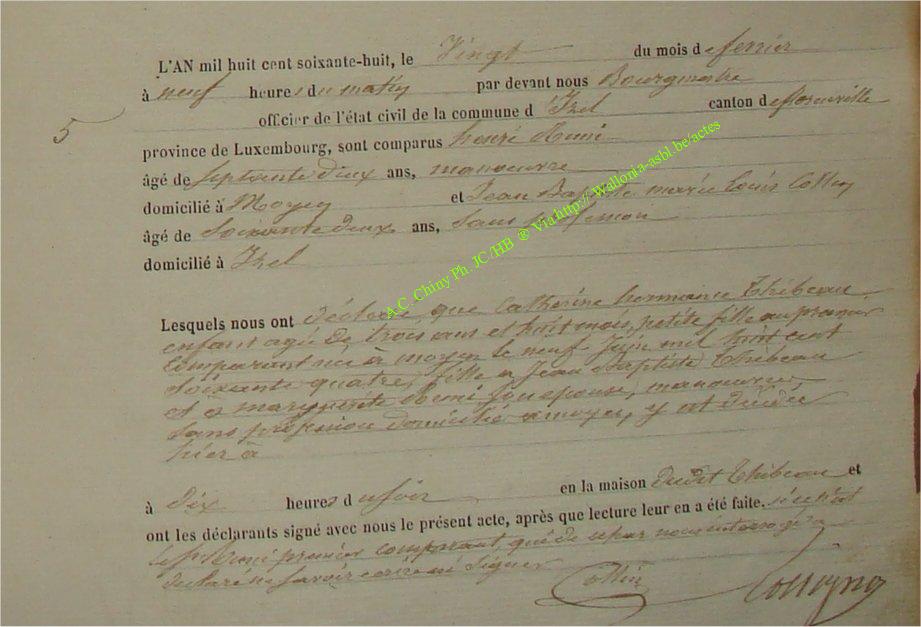 L'AN mil huit cent soixante-huit, le Vingt du mois de fevrier
à neuf heures du matin par devant nous Bourgmestre
5 officier de l'état civil de la commune d'Izel canton de florenville
province de Luxembourg, sont comparus henri
âgé de septante deux ans, manoeuvre
domicilié à Moyen et Jean Baptiste marie louis Collin
âgé de Soixante deux ans, Sans profession
domicilié à Izel
A.C. Chiny Ph. JC /HB ® Via http://Wallonia-asbl.be/actes
Lesquels nous ont déclaré que Catherine hermance Thibeau
enfant agée de trois ans et huit mois, petite fille au premier
comparant née à moyen le neuf Juin mil huit cent
soixante quatre, fille a Jean Baptiste Thibeau
et a marguerite son epouse, manoeuvre,
sans profession domicilié a moyen, y est décédée
hier à
à Dix heures du soir en la maison dudit Thibeau et
ont les déclarants signé avec nous le présent acte, après que lecture leur en a été faite. si ce n'est
le premier comparant, qui de ce par nous interrogé a
declaré ne savoir ecrire ni signer
Collin